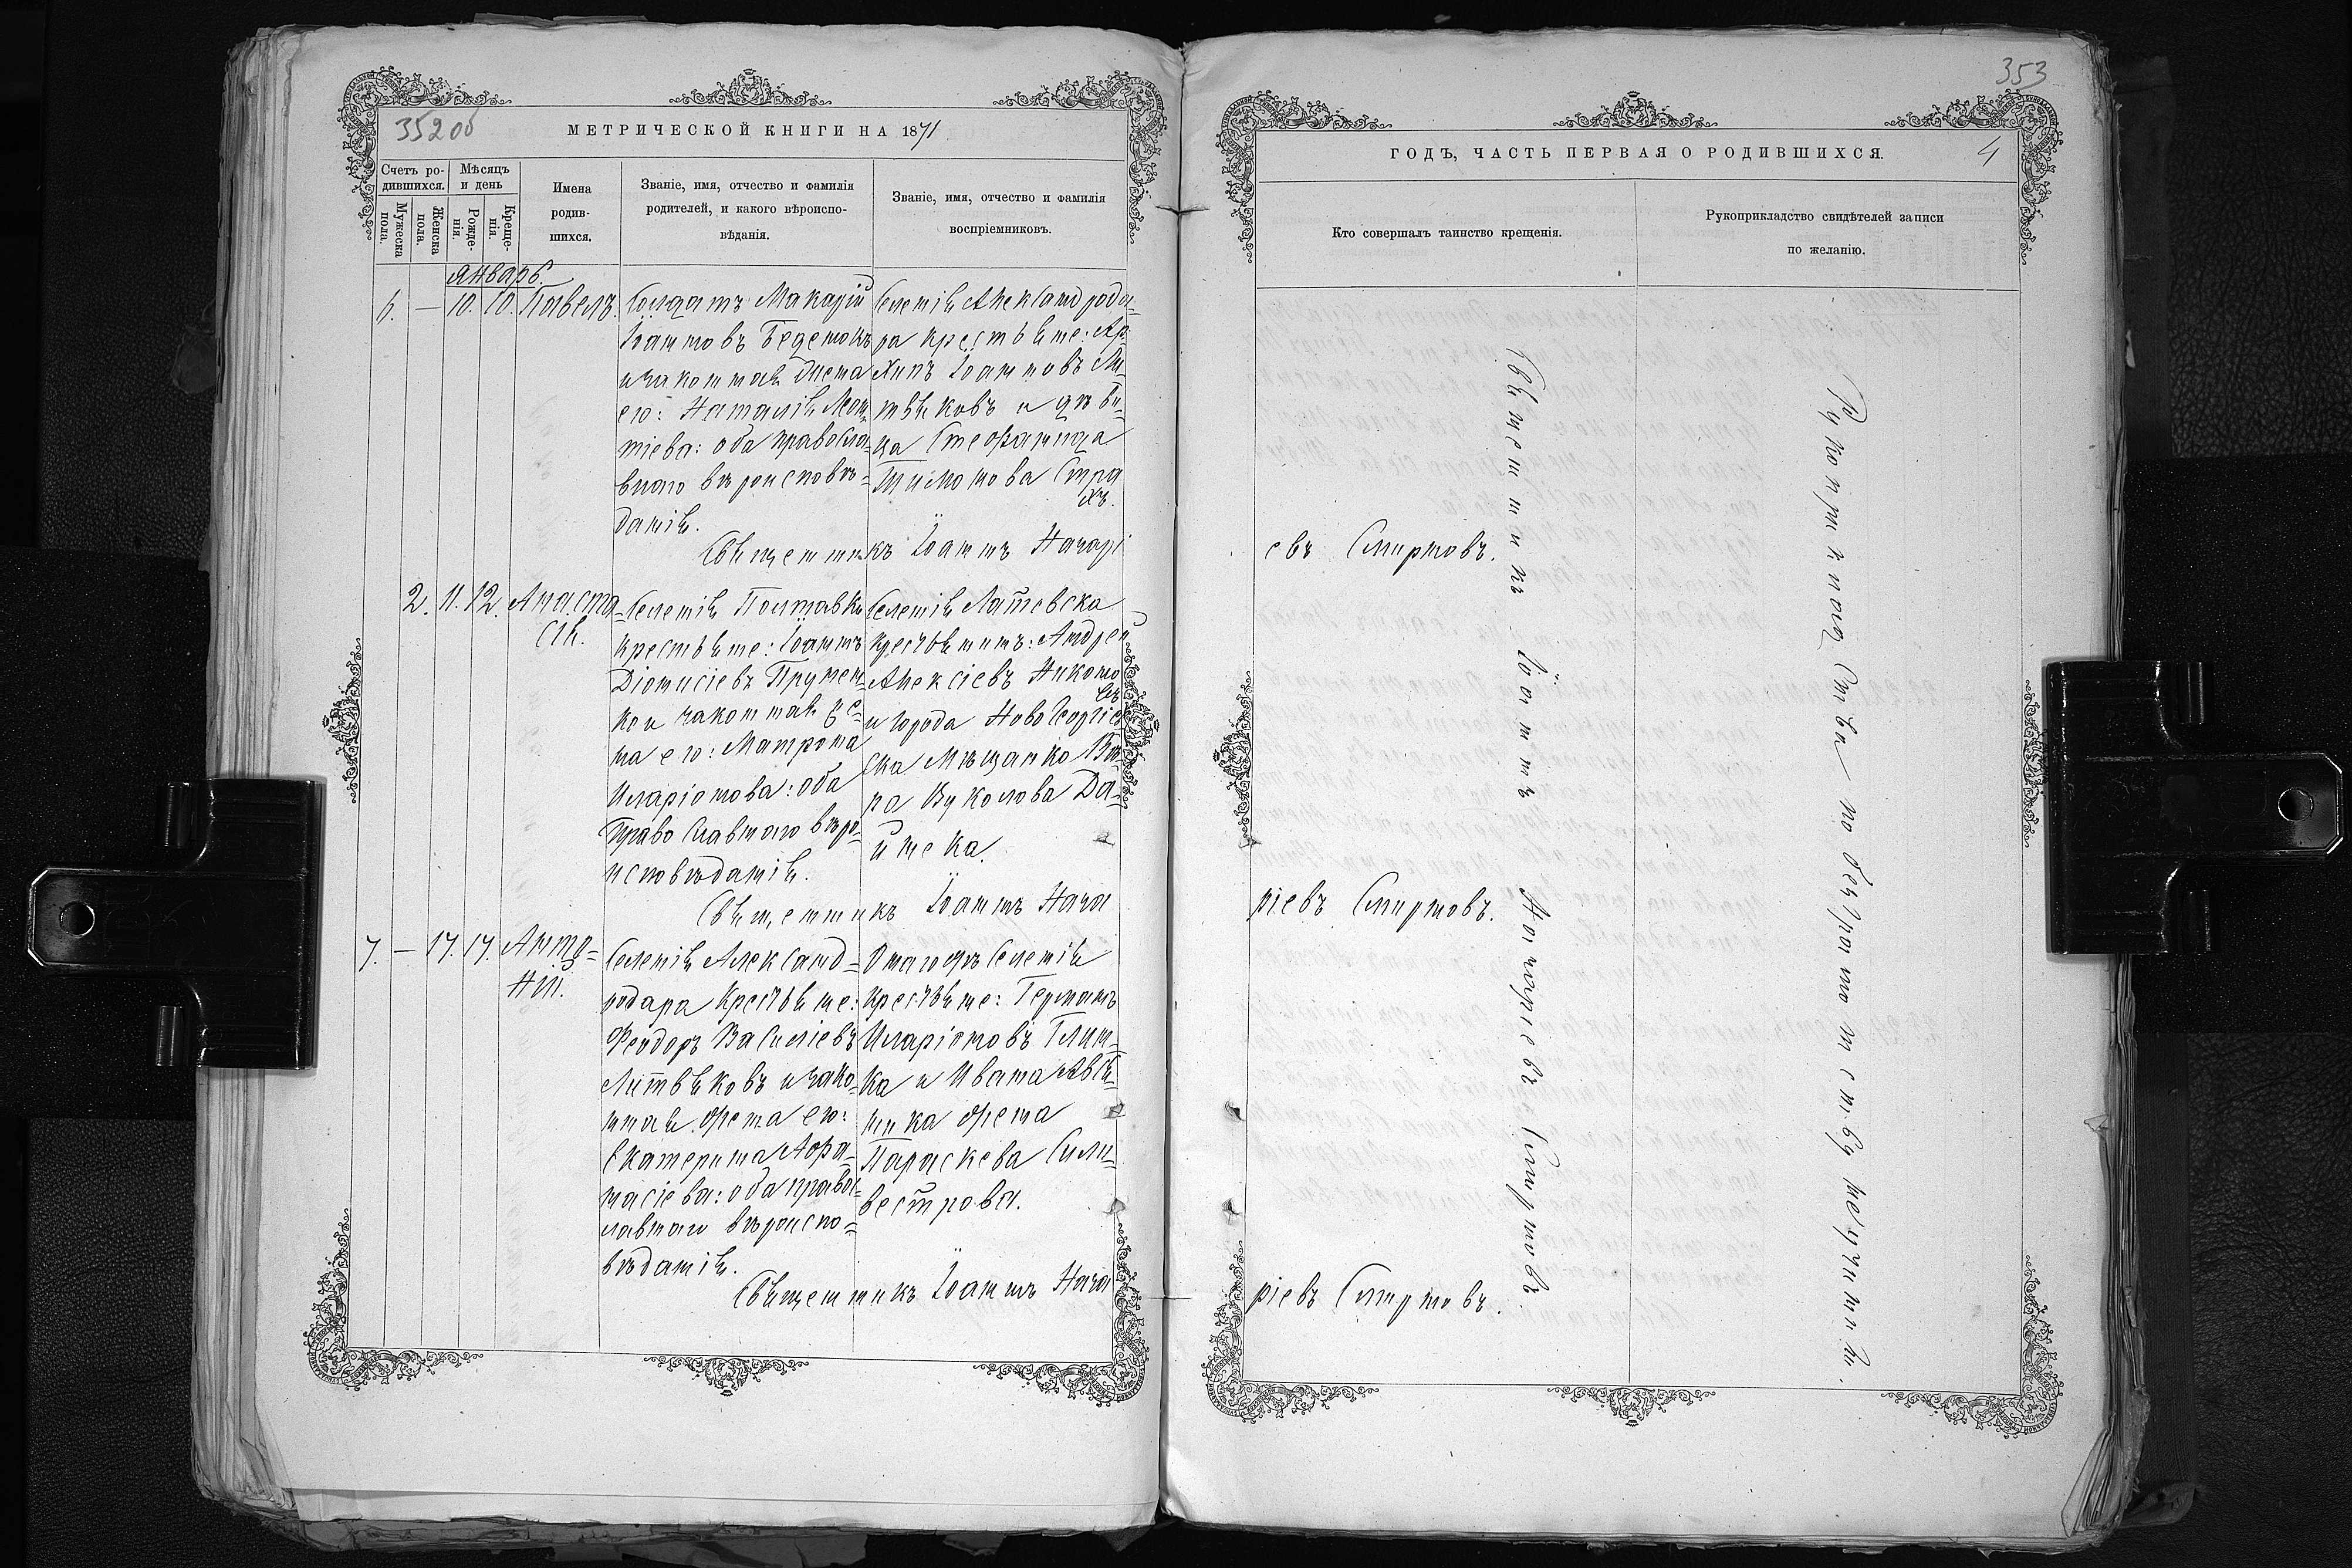 352об
МЕТРИЧЕСКОЙ КНИГИ НА 1871
Счетъ ро-
дившихся.
Мѣсяцъ
и день
Мужеска
пола.
Женска
пола.
Рожде-
нія.
Креще-
нія.
Имена
родив-
шихся.
Званіе, имя, отчество и фамилія
родителей, и какого вѣроиспо-
вѣданія.
Званіе, имя, отчество и фамилія
воспріемниковъ.
Январь.
6. — 10. 10. Павелъ.
Солдатъ Макарій
Іоанновъ
и законная жена
его: Наталія
тіева: оба православ-
внаго вѣроисповѣ-
данія.
Селенія Александрода-
ра крестьяне: Ар-
хипъ Іоанновъ Ли-
твяковъ и дѣви-
ца Стефанида
Тимонова Стра
хъ.
Священникъ Іоаннъ Назарі
2. 11. 12. Анаста-
сія.
Селенія Полтавки
крестьяне: Іоаннъ
Діонисіевъ
ко и законная же-
на его: Матрона
Иларіонова: оба
Православнаго вѣро-
исповѣданія.
Селенія
крестьянинъ: Андрей
Алексіевъ Никоно
въ
и города Новогеоргіев
ска мѣщанка Ва-
ра Вуколова Да-
Священникъ Іоаннъ Наза
7. — 17. 17. Анто-
ній.
Селенія Александ-
родара крестьяне:
Феодоръ Василіевъ
Литвяковъ и зако-
нная жена его:
Екатерина Афа-
насіева: оба правос-
лавнаго вѣроиспо-
вѣданія.
Онагожъ Селенія
крестьяне: Германъ
Иларіоновъ Глин-
ка и Ивана Авсі-
нка жена
Параскева Сили-
вестрова.
Священникъ Іоаннъ Наза
353
ГОДЪ, ЧАСТЬ ПЕРВАЯ О РОДИВШИХСЯ.
4
Кто совершалъ таинство крещенія.
Рукоприкладство свидѣтелей записи
по желанію.
евъ Смирновъ.
ріевъ Смирновъ.
ріевъ Смирновъ.
Священникъ Іоаннъ Назаріевъ Смирновъ
Рукоприкладства по безграмотству не учинили.